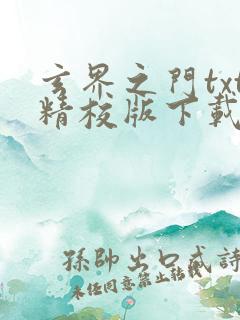 玄界之門txt
精校版下載
孫帥出口成詩
未任同意禁止转载